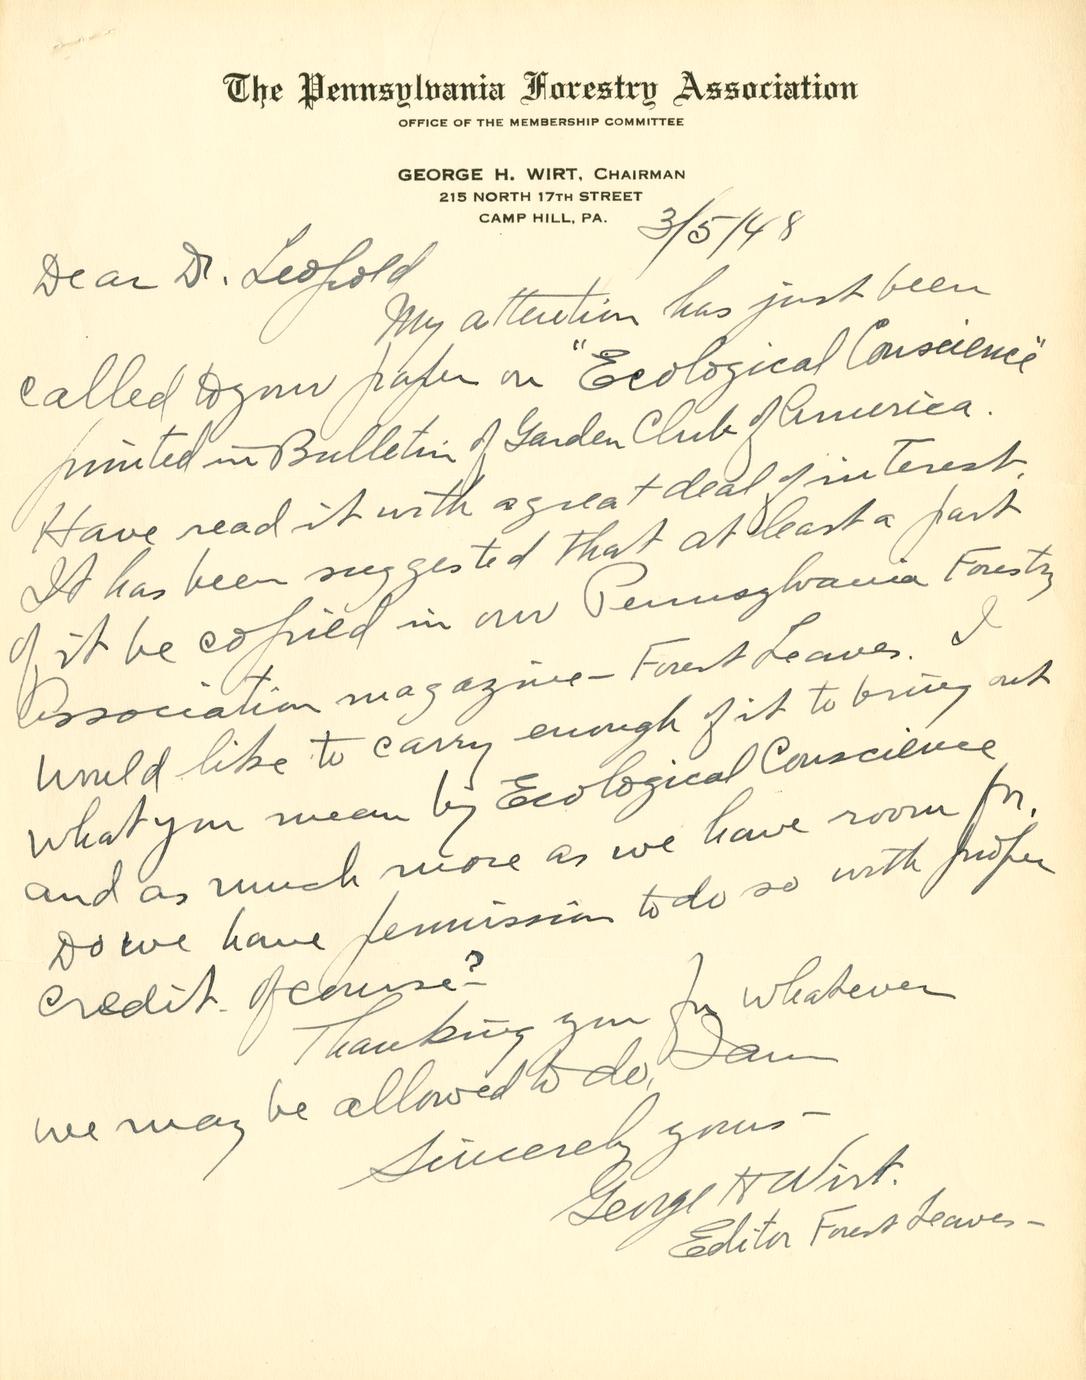 The Pennsylvania Forestry Association
OFFICE OF THE MEMBERSHIP COMMITTEE
GEORGE H. WIRT, CHAIRMAN
215 NORTH 17TH STREET
CAMP HILL, PA.
3/5/48
Dear Dr. Leopold
My attention has just been
called to your paper on "Ecological Conscience"
printed in Bulletin of Garden Club of America.
Have read it with a great deal of interest.
It has been suggested that at least a part
of it be copied in our Pennsylvania Forestry
Association magazine - Forest Leaves. I
would like to carry enough of it to bring out
what you mean by Ecological Conscience
and as much more as we have room for.
Do we have permission to do so with proper
credit of course?
Thanking you for whatever
we may be allowed to do, I am
Sincerely yours -
George H Wirt.
Editor Forest Leaves -